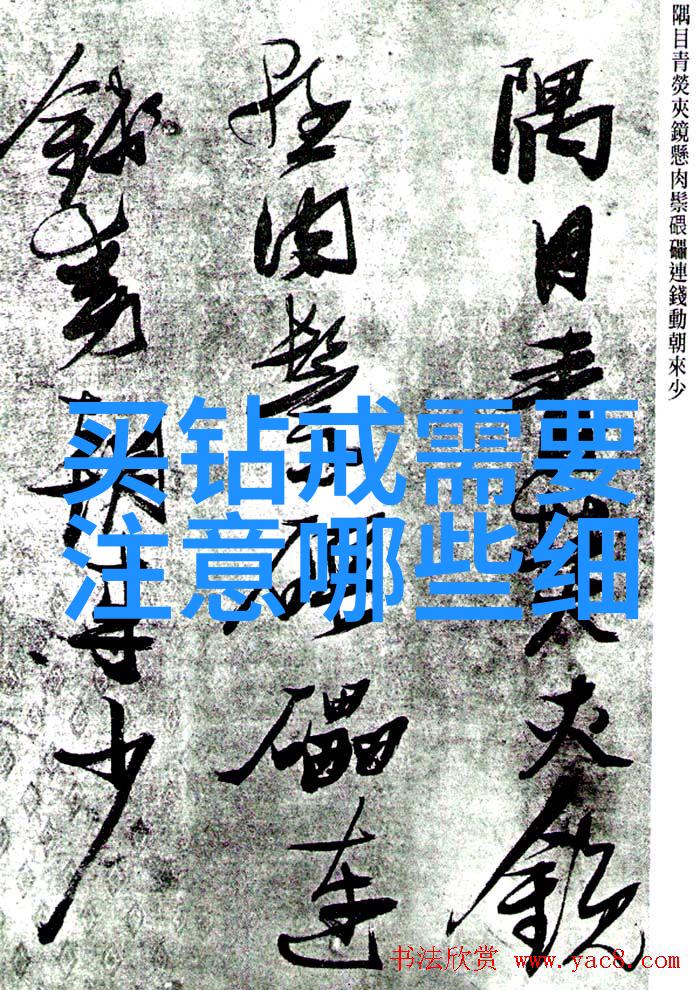 隅目青熒夾鏡懸肉鬃碨礧連錢動朝來少
隅目青熒夾鏡
懸肉鬃碨礧連
錢動朝來少
买钻戒需要
注意哪些细
书法欣赏 www.yac8.com